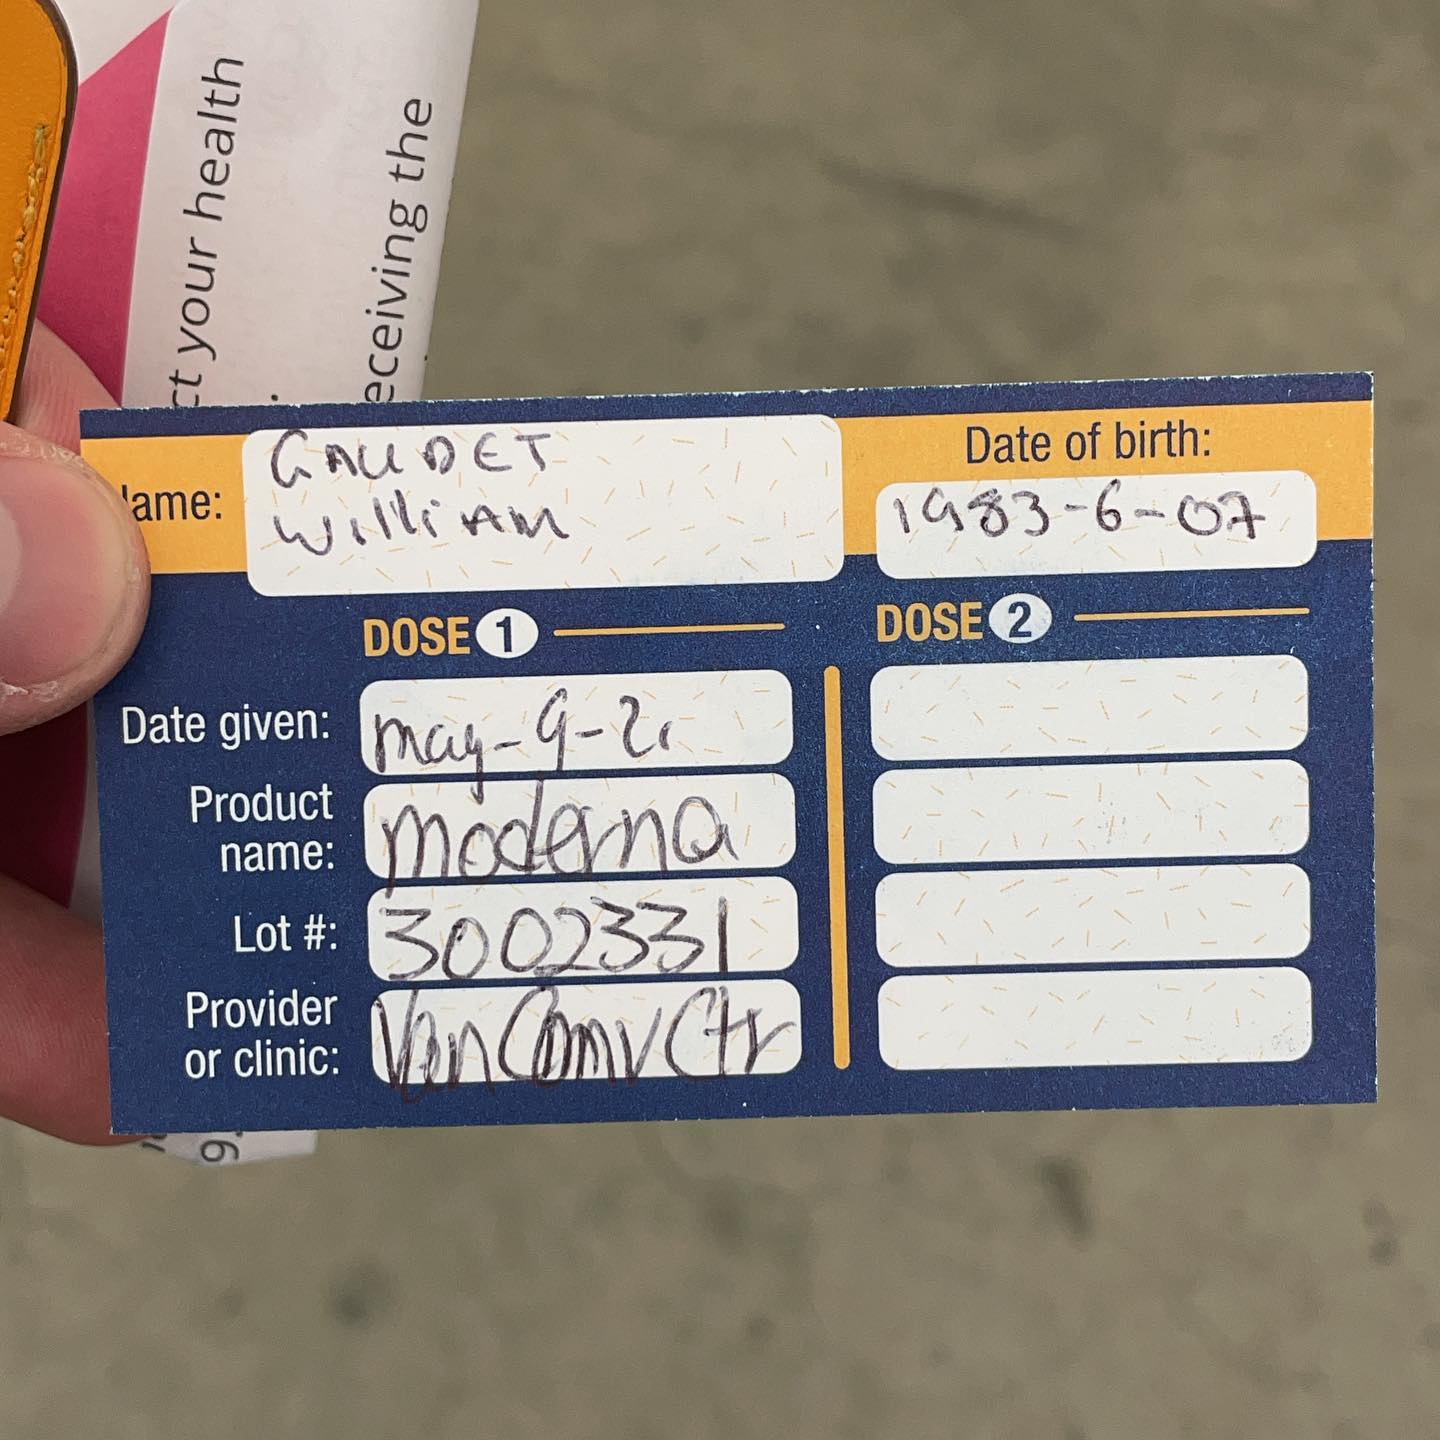 ct your health
eceiving the
GAUDET
William
ame:
Date of birth:
1983-6-07
DOSE 1
DOSE 2
Date given:
may-9-21
Product
name:
moderna
Lot #:
3002331
Provider
or clinic:
Van Conv Ctr